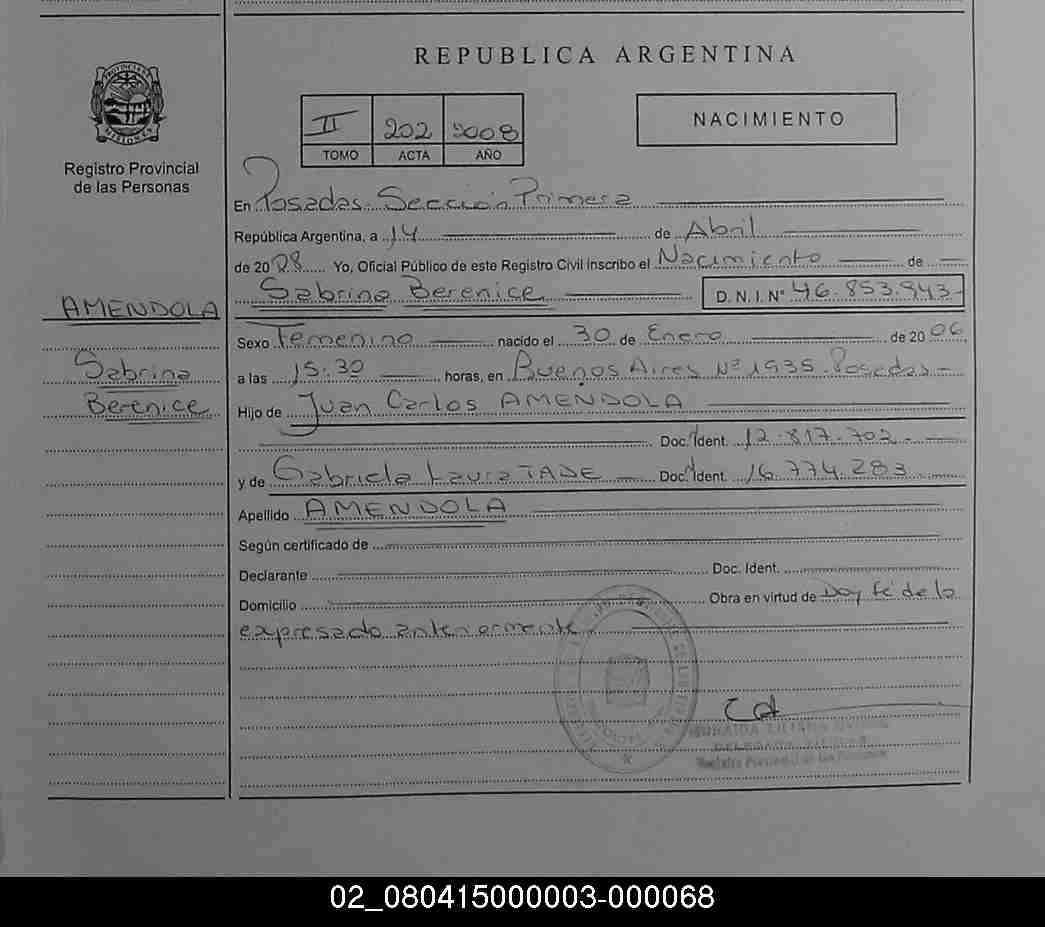 REPUBLICA ARGENTINA
PROVINCIA DE
MISIONES
Registro Provincial
de las Personas
II 202 2008
TOMO ACTA AÑO
NACIMIENTO
En Posadas. Sección Primera
República Argentina, a 14 de Abril
de 2008 Yo, Oficial Público de este Registro Civil inscribo el Nacimiento de
Sabrina Berenice D. N. I. Nº 46.853.943-
AMENDOLA
Sabrina
Berenice
Sexo Femenino nacido el 30 de Enero de 2006,
a las 15:30 horas, en Buenos Aires Nº 1935. Posadas -
Hijo de Juan Carlos AMENDOLA
Doc. Ident. 12.817.702.-
y de Gabriela Laura TADE Doc. Ident. 16.774.283
Apellido AMENDOLA
Según certificado de
Declarante Doc. Ident.
Domicilio Obra en virtud de Doy fé de lo
expresado anteriormente.
Registro Provincial de las Personas
02_080415000003-000068